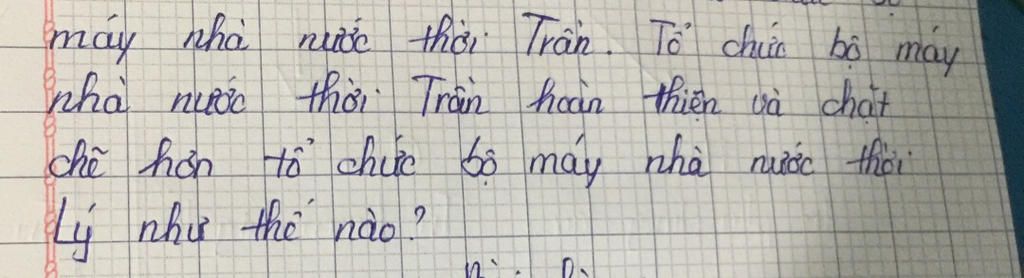 máy nhà nước thời Trần. Tổ chức bộ máy
nhà nước thời Trần hoàn thiện và chặt
chẽ hơn tổ chức bộ máy nhà nước thời
Lý như thế nào?